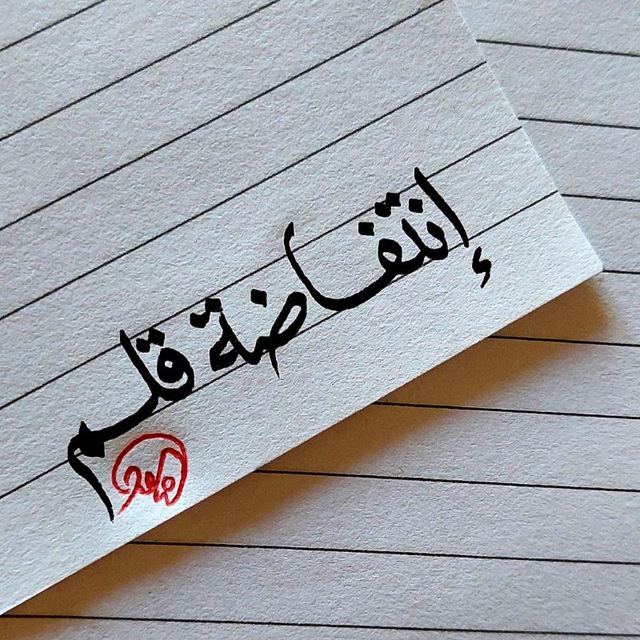 إنتفاضة قلم